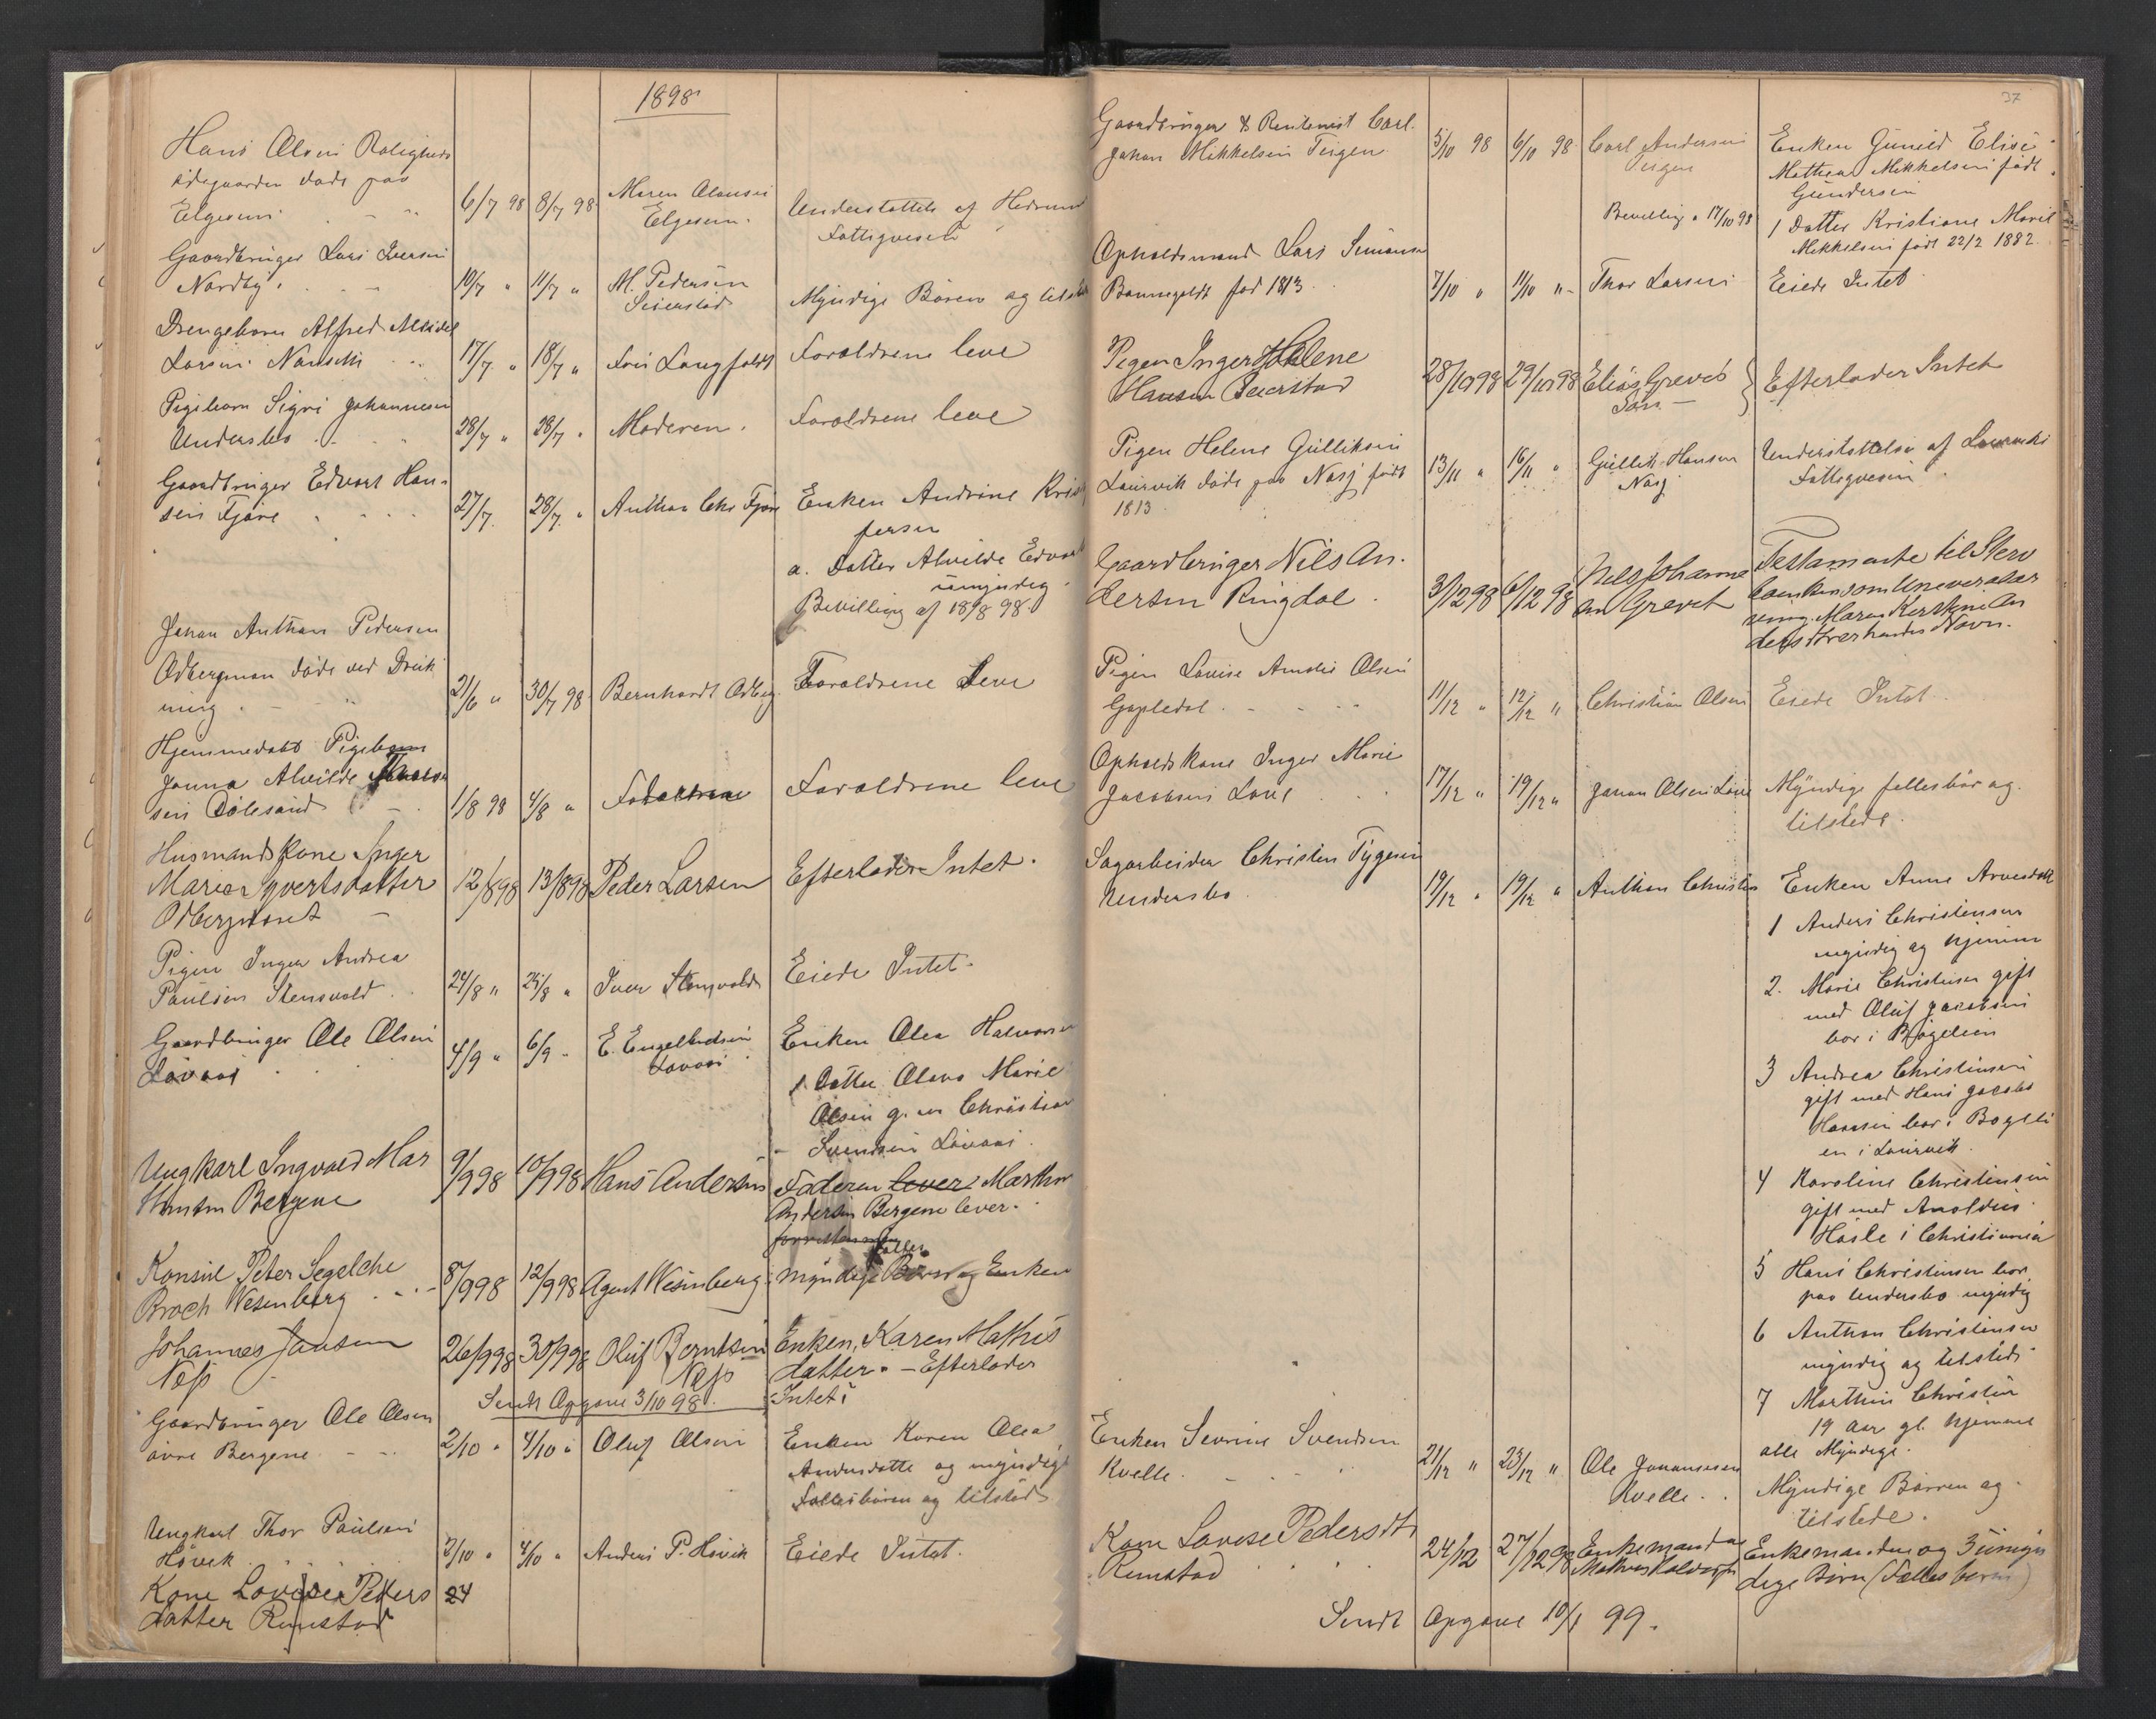 1898
Hans Olsen Roligheds
ødegaarden døde paa
Elgesem 6/7 98 8/7 98 Maren Olausen Understøttels af Hedrum
Elgesem. Fattigvesen
Gaardbruger Lars Iversen
Nordby. 10/7 " 11/7 " M. Pedersen Myndige Børen og tilsted
Seierstad
Drengebarn Alfred
Larsen Nanseth 17/7 " 18/7 " Langfeldt Foraldrene leve
Pigebarn Sigri Johannesen
Undersbo 28/7 " 28/7 " Moderen. Foraldrene leve
Gaardbruger Edvart Han-
sen Fjære 27/7. 28/7. " Anthon Chr Fjære Enken Andrine Kris
fersen
a. Datter Alvilde Edvart
umyndig.
Bevilling af 18/8 98.
Johan Anthon Pedersen
Odbergmoen døde ved Druk
ning. 21/6 " 30/7 98 Bernhardt Odberg. Foraldrene Leve
Hjemmedøbt Pigebarn
Janna Alvilde
sen Dølesand 1/8 98 4/8 " Foraldrene leve
Husmandskone Inger
Marie Syvertsdatter 12/8 98 13/8 98 Peder Larsen Efterlader Intet.
Odbergmoret
Pigen Inger Andrea
Paulsen Stensvold 24/8 " 25/8 " Iver Stensvold Eiede Intet.
Gaardbruger Ole Olsen
Løvaas 4/9 " 6/9 " E. Engelbretsen Enken Olea Halvorsen
Løvaas
1 Datter Olava Marie
Olsen g. m Christian
Svendsen Løvaas.
Ungkarl Ingvald Mar
thinsen Bergene 9/9 98 10/9 98 Hans Andersen Faderen lever Marthin
Andersen Bergene lever.
Konsul Peter Segelcke
Broch Wesenberg 8/9 98 12/9 98 Agent Wesenberg. Myndige Børn og Enken
Johannes Jansen
Næss 26/9 98 30/9 98 Oluf Berntsen Enken, Karen Mathis
Næss datter. - Efterlader
Sendt Opgave 3/10 98. Intet.
Gaardbruger Ole Olsen
øvre Bergene 2/10 " 4/10 " Oluf Olsen Enken Karen Olea
Andersdatte og myndige
Fællesbøren og tilsted
Ungkarl Thor Paulsen
Høvik 3/10 " 4/10 " Anders P. Høvik Eiede Intet.
Kone Lovise Peders 24
datter Rimstad
37
Gaardbruger & Rentenist Carl
Johan Mikkelsen Teigen 5/10 98 6/10 98 Carl Andersen Enken Gunild Elise
Teigen Mathea Mikkelsen født
Gundersen
Bevilling a 17/10 98 1 Datter Kristiane Marie
Mikkelsen født 22/2 1882.
Opholdsmand Lars Simonsen
Bommegaldt fød 1813 7/10 " 11/10 " Thor Larsen Eiede Intet
Pigen Inger Helene
Hansen Seierstad 28/10 98 29/10 98 Elias Greves Efterlader Intet
Søn
Pigen Helene Gulliksen
Laurvik døde paa Nasj født 13/11 " 16/11 " Gullik Hansen Understøttelse af Laurviks
1813 Nasj Fattigvesen
Gaardbruger Nils An-
dersen Ringdal. 3/12 98 6/12 98 Nils Johanne Testamente til
sen Grevet
Maren Kerstine An
Navn.
Pigen Lovise Amalie Olsen
Gopledal 11/12 " 12/12 " Christian Olsen Eiede Intet
Opholdskone Inger Marie
Jacobsen Løve 17/12 " 19/12 " Johan Olsen Løve Myndige fellesbør og
tilstede.
Sagarbeider Christen Tygesen
Undersbo 19/12 " 19/12 " Anthon Christen Enken Anne Arvesdatt
1 Anders Christensen
myndig og hjemme
2. Marie Christensen gift
med Oluf Jacobsen
bor i Bøgelien
3 Andrea Christensen
gift med Hans Jacob
Hansen bor i Bøgeli
en i Laurvik
4 Karoline Christensen
gift med Anoldus
Hasle i Christiania
5 Hans Christensen bor
paa Undersbo myndig
6 Anthon Christensen
myndig og tilstede
7 Marthin Christen
19 aar gl. hjemme
alle Myndige.
Enken Severine Svendsen
Kvelle. 21/12 " 23/12 " Ole Johannesen Myndige Børren og
Kvelle. tilstede.
Kone Lovise Pedersdt
Rimstad 24/12 27/12 98 Enkemanden Enkemanden og 3 umyn
dige Børn (Fælles børn)
Sendt Opgave 10/1 99.